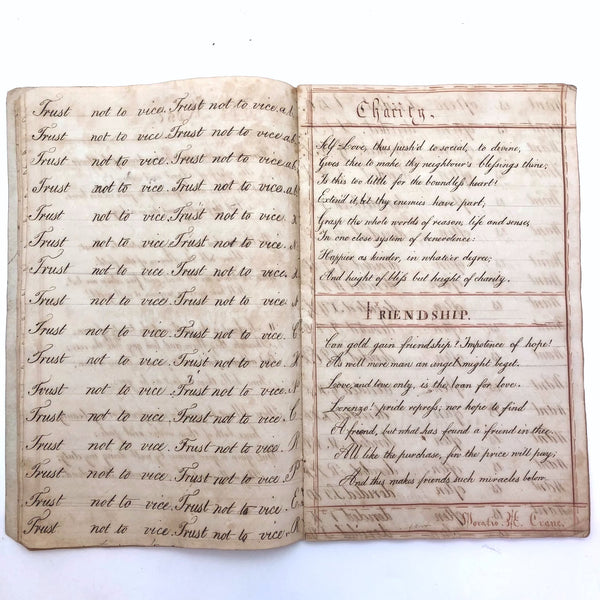 Trust not to vice. Trust not to vice. a.b.
Trust not to vice. Trust not to vice. a.b.
Trust not to vice. Trust not to vice. a.b.
Trust not to vice. Trust not to vice. a.b.
Trust not to vice. Trust not to vice.
Trust not to vice. Trust not to vice.
Trust not to vice. Trust not to vice.
Trust not to vice. Trust not to vice.
Trust not to vice. Trust not to vice.
Trust not to vice. Trust not to vice.
Trust not to vice. Trust not to vice.
Trust not to vice. Trust not to vice.
Trust not to vice. Trust not to vice.
Trust not to vice. Trust not to vice.
Trust not to vice. Trust not to vice.
Trust not to vice. Trust not to vice.
Charity.
Self-Love, thus push'd to social, to divine,
Gives thee to make thy neighbour's blessings thine;
Is this too little for the boundless heart!
Extend it, let thy enemies have part;
Grasp the whole worlds of reason, life and sense,
In one close system of benevolence:
Happier as kinder, in whate'er degree;
And height of bless but height of charity.
FRIENDSHIP.
Can gold gain friendship? Impotence of hope!
As well mere man an angel might beget.
Love, and love only, is the loan for love.
Lorenzo! pride repress; nor hope to find
A friend, but what has found a friend in thee.
All like the purchase, few the price will pay;
And this makes friends such miracles below.
Horatio H. Crane.